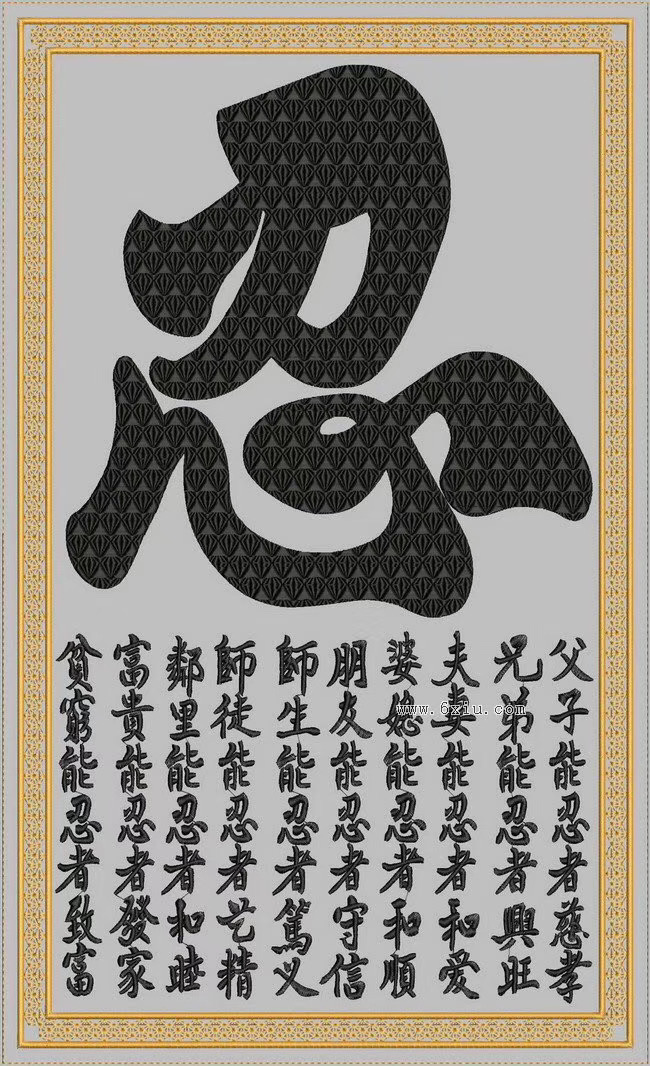 忍
父子能忍者慈孝
兄弟能忍者興旺
夫妻能忍者和爱
婆媳能忍者和順
朋友能忍者守信
師生能忍者篤义
師徒能忍者艺精
鄰里能忍者和睦
富貴能忍者發家
貧窮能忍者致富
www.6xiu.com